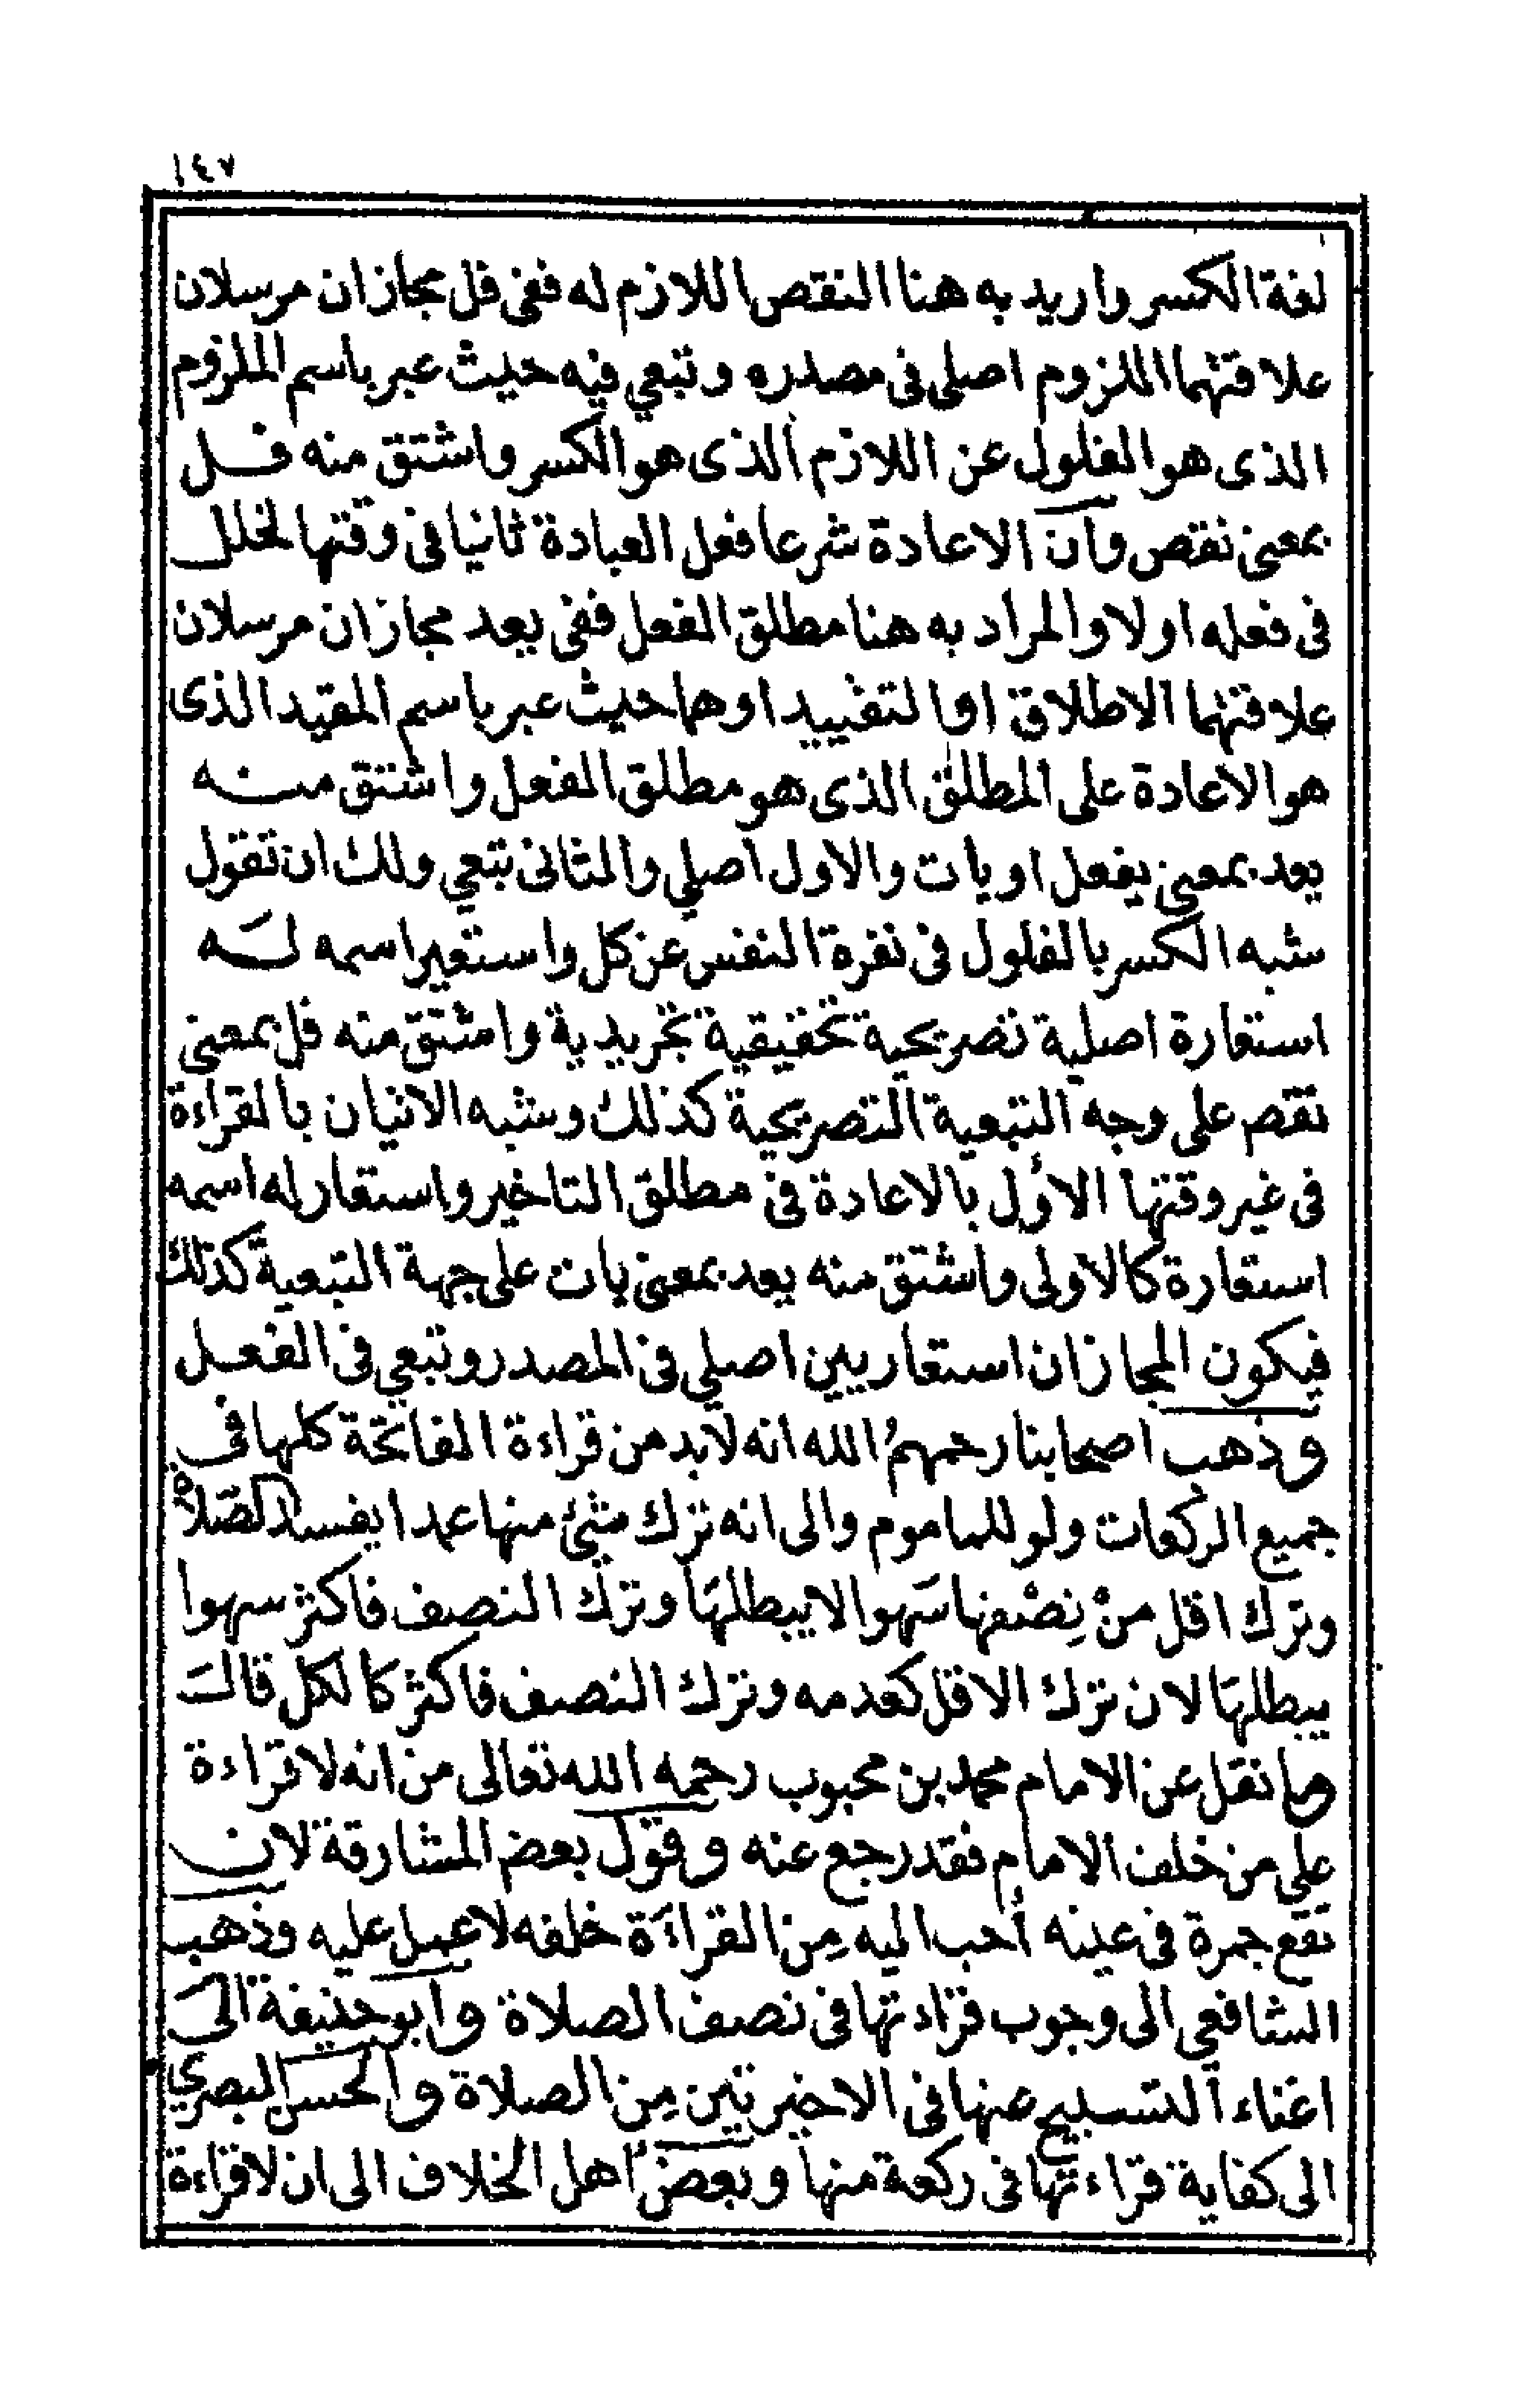 ١٤٧
لغة الكسر واريد به هنا النقص اللازم له ففى فل مجازان مرسلان
علاقتهما اللزوم اصلى فى مصدره وتبعي فيه حيث عبر باسم الملزوم
الذى هو الفلول عن اللازم الذى هو الكسر واشتق منه فل
بمعنى نقص وان الاعادة شرعا فعل العبادة ثانيا فى وقتها لخلل
فى فعله اولا والمراد به هنا مطلق الفعل ففى يعد مجازان مرسلان
علاقتهما الاطلاق او التقييد او هما حيث عبر باسم المقيد الذى
هو الاعادة على المطلق الذى هو مطلق الفعل واشتق منه
يعد بمعنى يفعل او يأت والاول اصلي والثانى تبعي ولك ان تقول
شبه الكسر بالفلول فى نفرة النفس عن كل واستعير اسمه له
استعارة اصلية تصريحية تحقيقية تجريدية واشتق منه فل بمعنى
نقص على وجه التبعية التصريحية كذلك وشبه الاتيان بالقراءة
فى غير وقتها الأول بالاعادة فى مطلق التاخير واستعار له اسمه
استعارة كالاولى واشتق منه يعد بمعنى يات على جهة التبعية كذلك
فيكون المجازان استعاريين اصلي فى المصدر وتبعي فى الفعل
وذهب اصحابنا رحمهمُ الله انه لابد من قراءة الفاتحة كلها فى
جميع الركعات ولو للماموم والى انه ترك شئ منها عمدا يفسد الصّلاة
وترك اقل منْ نِصْفها سَهوا لا يبطلهَا وترك النصف فاكثر سهوا
يبطلهَا لان ترك الاقل كعدمه وترك النصف فاكثر كالكل قالَ
وما نقل عن الامام محمد بن محبوب رحمه الله تعالى من انه لا قراءة
على من خلف الامام فقد رجع عنه وقول بعض المشارقة لان
تقع جمرة فى عينه أحب اليه مِن القراءَة خلفه لا عمل عليه وذهب
الشافعي الى وجوب قراءتها فى نصف الصلاة وابو حنيفة الىَ
اغناء التسبيح عنها فى الاخيرتين مِن الصلاة والحسن البصري
الى كفاية قراءتها فى ركعة منها وبعضُ اهل الخلاف الى ان لا قراءة